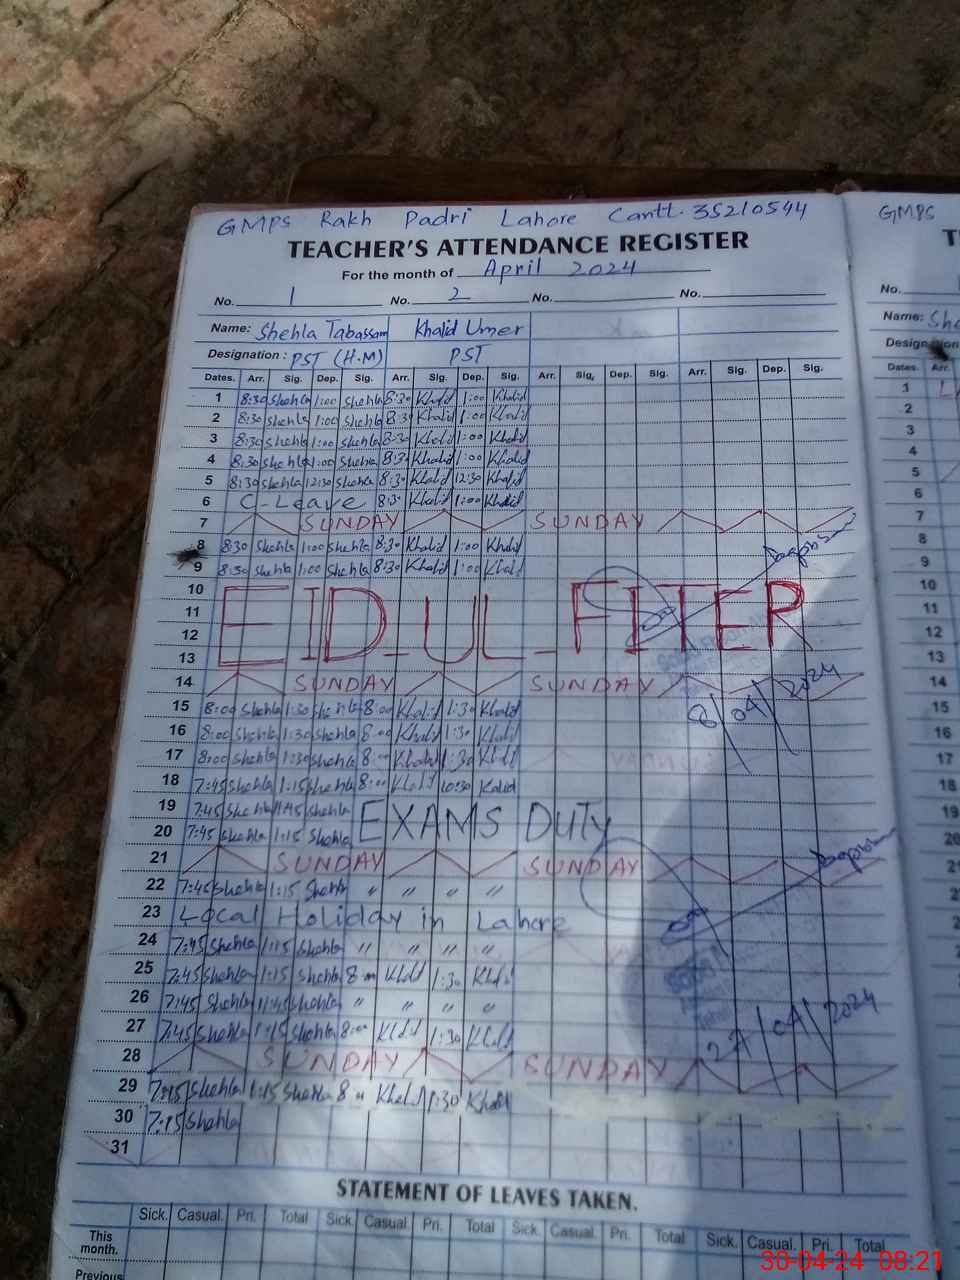 GMPS Rakh Padri Lahore Cantt. 35210544
TEACHER'S ATTENDANCE REGISTER
For the month of April 2024
No. 1 No. 2 No. No.
Name: Shehla Tabassam Khalid Umer
Designation: PST (H.M) PST
Dates. Arr. Sig. Dep. Sig. Arr. Sig. Dep. Sig. Arr. Sig. Dep. Sig. Arr. Sig. Dep. Sig.
1 8:30 Shehla 1:00 Shehla 8:30 Khalid 1:00 Khalid
2 8:30 Shehla 1:00 Shehla 8:30 Khalid 1:00 Khalid
3 8:30 Shehla 1:00 Shehla 8:30 Khalid 1:00 Khalid
4 8:30 Shehla 1:00 Shehla 8:30 Khalid 1:00 Khalid
5 8:30 Shehla 12:30 Shehla 8:30 Khalid 12:30 Khalid
6 C-Leave 8:30 Khalid 1:00 Khalid
7 SUNDAY SUNDAY
8 8:30 Shehla 1:00 Shehla 8:30 Khalid 1:00 Khalid
9 8:30 Shehla 1:00 Shehla 8:30 Khalid 1:00 Khalid
10
11 EID_UL_FITER
12
13
14 SUNDAY SUNDAY
8/04/2024
15 8:00 Shehla 1:30 Shehla 8:00 Khalid 1:30 Khalid
16 8:00 Shehla 1:30 Shehla 8:00 Khalid 1:30 Khalid
17 8:00 Shehla 1:30 Shehla 8:00 Khalid 1:30 Khalid
18 7:45 Shehla 1:15 Shehla 8:00 Khalid 10:30 Kalid
19 7:45 Shehla 11:45 Shehla EXAMS DUTY
20 7:45 Shehla 1:15 Shehla
21 SUNDAY SUNDAY
22 7:45 Shehla 1:15 Shehla " " " "
23 Local Holiday in Lahore
24 7:45 Shehla 1:15 Shehla " " " "
25 7:45 Shehla 1:15 Shehla 8:00 Khalid 1:30 Khalid
26 7:45 Shehla 11:45 Shehla " " " "
27 7:45 Shehla 1:15 Shehla 8:00 Khalid 1:30 Khalid
27/04/2024
28 SUNDAY SUNDAY
29 7:45 Shehla 1:15 Shehla 8:00 Khalid 1:30 Khalid
30 Shehla
31
STATEMENT OF LEAVES TAKEN.
Sick. Casual. Pri. Total Sick. Casual. Pri. Total Sick. Casual. Pri. Total Sick. Casual. Pri. Total
This month.
Previous
GMPS
No.
Name: She
Designation
Dates. Arr.
1
2
3
4
5
6
7
8
9
10
11
12
13
14
15
16
17
18
30-04-24 08:21